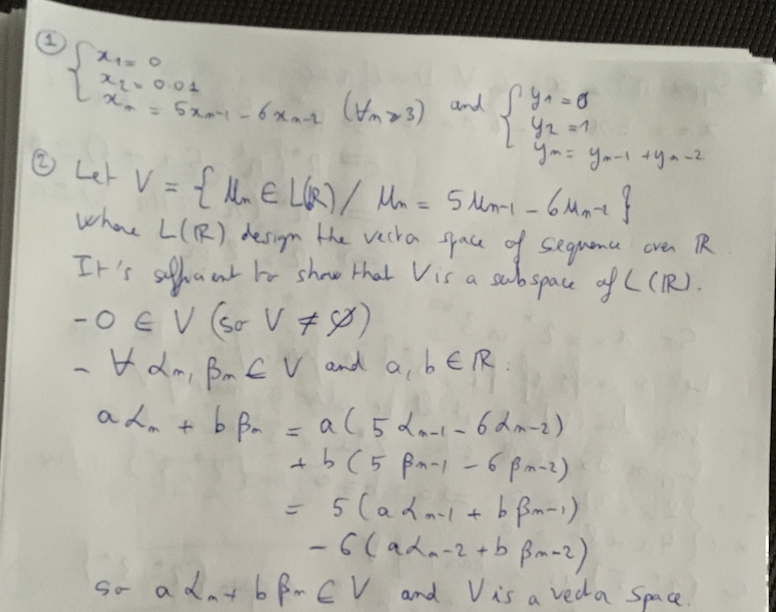 ① { x₁ = 0
x₂ = 0.01
xₙ = 5xₙ₋₁ - 6xₙ₋₂ (∀n ≥ 3) and { y₁ = 0
y₂ = 1
yₙ = yₙ₋₁ + yₙ₋₂
② Let V = { μₙ ∈ L(ℝ) / μₙ = 5μₙ₋₁ - 6μₙ₋₂ }
where L(ℝ) design the vector space of sequence over ℝ.
It's sufficient to show that V is a subspace of L(ℝ).
- 0 ∈ V (so V ≠ ∅)
- ∀ αₙ, βₙ ∈ V and a, b ∈ ℝ:
aαₙ + bβₙ = a(5αₙ₋₁ - 6αₙ₋₂)
+ b(5βₙ₋₁ - 6βₙ₋₂)
= 5(aαₙ₋₁ + bβₙ₋₁)
- 6(aαₙ₋₂ + bβₙ₋₂)
so aαₙ + bβₙ ∈ V and V is a vector space.